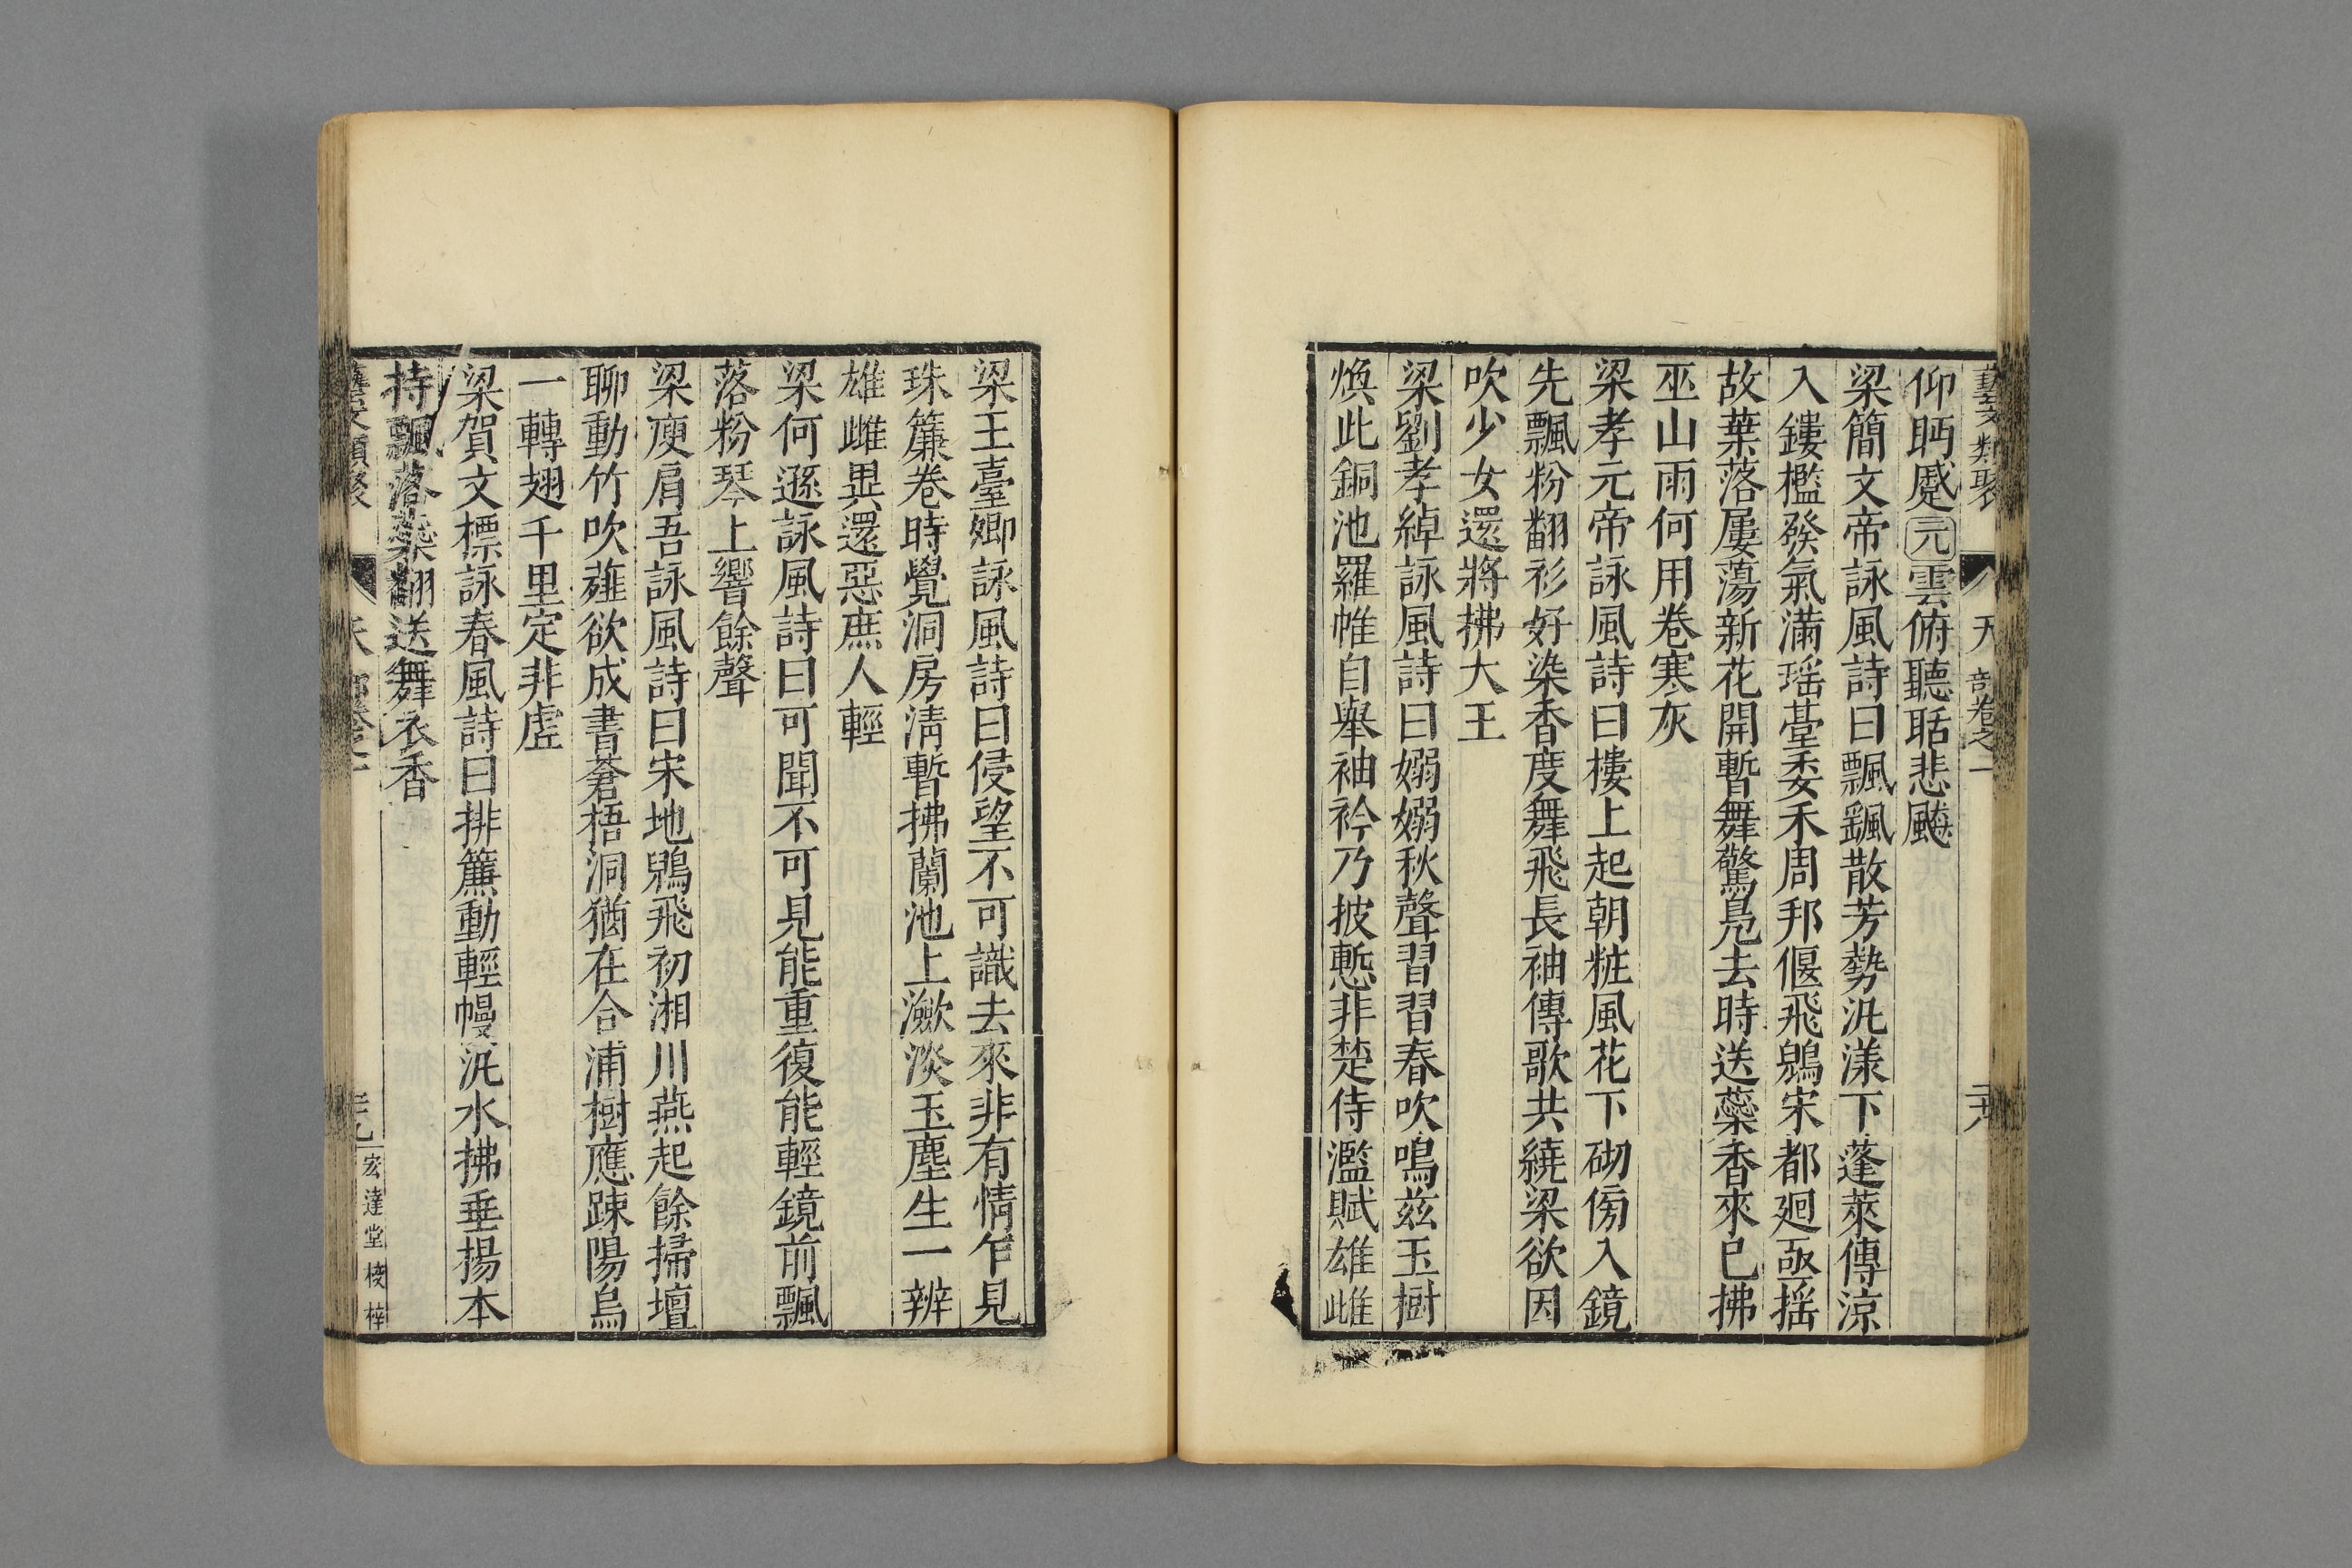 藝文類聚 天部卷之一 二十八
仰眄蹙元雲俯聽聒悲飈
梁簡文帝詠風詩曰飄颻散芳勢泛漾下蓬萊傳涼
入鏤檻發氣滿瑤臺委禾周邦偃飛鶂宋都廻亟搖
故葉落屢蕩新花開暫舞驚鳧去時送蘂香來已拂
巫山雨何用卷寒灰
梁孝元帝詠風詩曰樓上起朝粧風花下砌傍入鏡
先飄粉翻衫好染香度舞飛長袖傳歌共繞梁欲因
吹少女還將拂大王
梁劉孝綽詠風詩曰嫋嫋秋聲習習春吹鳴茲玉樹
煥此銅池羅帷自舉袖衿乃披慙非楚侍濫賦雄雌
梁王臺卿詠風詩曰侵望不可識去來非有情乍見
珠簾卷時覺洞房淸暫拂蘭池上瀲淡玉塵生一辨
雄雌異還惡庶人輕
梁何遜詠風詩曰可聞不可見能重復能輕鏡前飄
落粉琴上響餘聲
梁庾肩吾詠風詩曰宋地鶂飛初湘川燕起餘掃壇
聊動竹吹薤欲成書蒼梧洞猶在合浦樹應踈陽烏
一轉翅千里定非虛
梁賀文標詠春風詩曰排簾動輕幔泛水拂垂揚本
持飄落蘂翻送舞衣香
藝文類聚 天部卷之一 二十九 宏達堂校梓